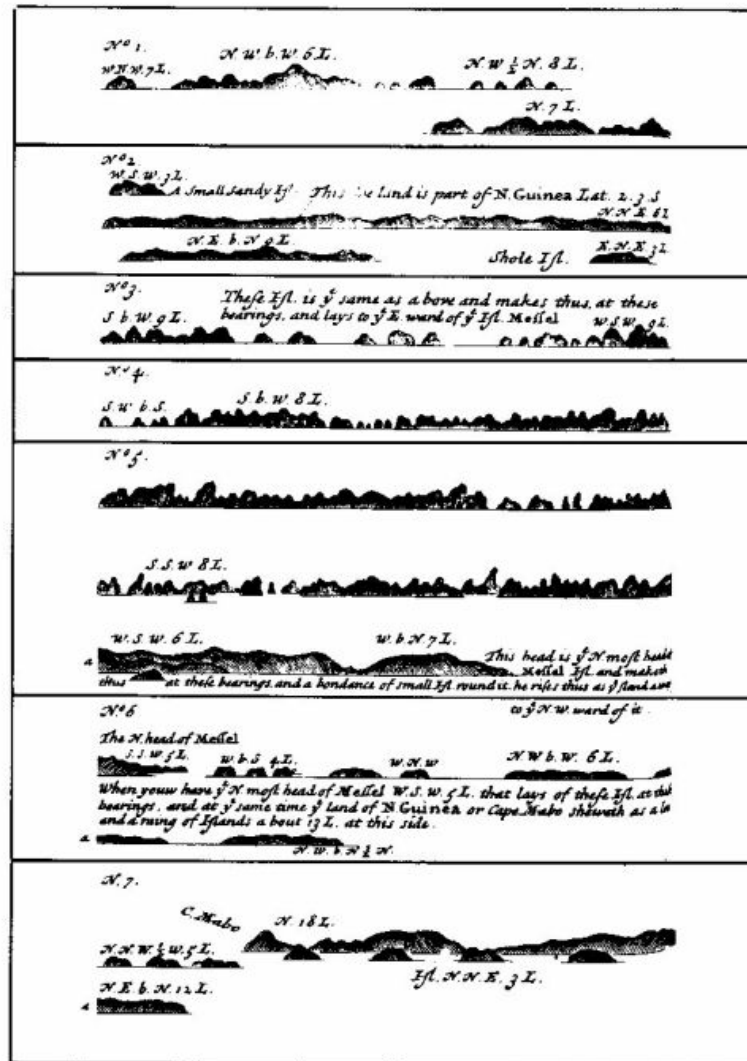 Nº 1.
N. W. b. W. 6 L.
W. N. W. 7 L.
N. W ½ N. 8 L.
N. 7 L.
Nº 2.
W. S. W. 3 L.
A Small Sandy Iſl. This land is part of N. Guinea Lat. 2. 3. S
N. N. E. 6 L
N. E. b. N 9 L.
Shole Iſl.
E. N. E 3 L
Nº 3.
Theſe Iſl. is yͤ same as above and makes thus, at these
bearings, and lays to yͤ E. ward of yͤ Iſl. Meſſel
S. b. W. 9 L.
W. S. W. 9 L.
Nº 4.
S. W. b. S.
S. b. W. 8 L.
Nº 5.
S. S. W 8 L.
W. S. W. 6 L.
W. b N. 7 L.
This head is yͤ N moſt head
a
Meſſel Iſl. and maketh
thus at theſe bearings, and a bondance of small Iſl. round it. he riſes thus as yͤ ſtand
to yͤ N. W. ward of it.
Nº 6
The N. head of Meſſel
S. S. W. 5 L.
W. b. S 4 L.
W. N. W
N. W b. W. 6 L.
When youw have yͤ N. moſt head of Meſſel W. S. W. 5 L. that lays of theſe Iſl. at thus
bearings, and at yͤ same time yͤ land of N Guinea or Cape Mabo sheweth as a
and a raing of Iſlands a bout 13 L. at this side.
a
N. W. b. N ½ N.
N. 7.
C. Mabo
N. 18 L.
N. N. W. ½ W. 5 L.
Iſl. N. N. E. 3 L.
N. E. b. N. 12 L.
a